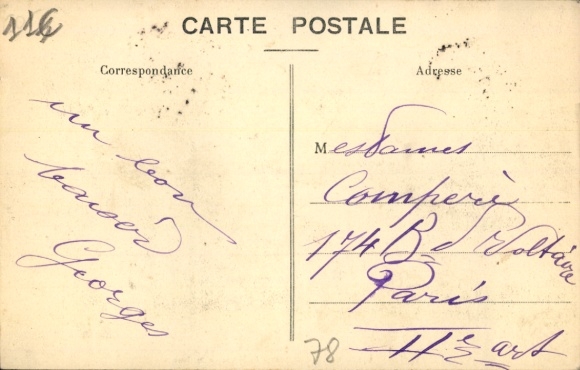 116
CARTE POSTALE
Correspondance
Adresse
un bon
baiser
Georges
Mesdames
Comperè
174 Bd Voltaire
Paris
11e art
78